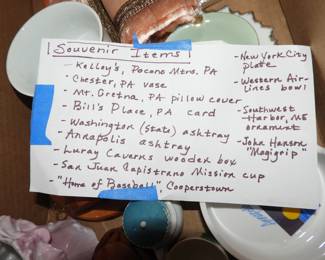 Souvenir Items
- Kelley's, Pocono Mtns. PA
- Chester, PA vase
- Mt. Gretna, PA pillow cover
- Bill's Place, PA card
- Washington (State) ashtray
- Annapolis ashtray
- Luray Caverns wooden box
- San Juan Capistrano Mission cup
- "Home of Baseball" Cooperstown
- New York City
plate
- Western Air-
lines bowl
- Southwest
Harbor, ME
ornament
- John Hanson
"Magigrip"